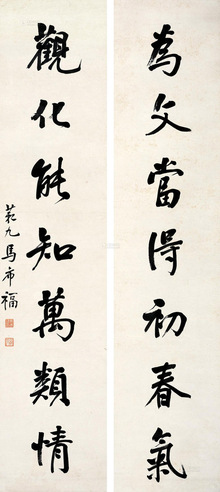 為文當得初春氣
觀化能知萬類情
菘九馬步福